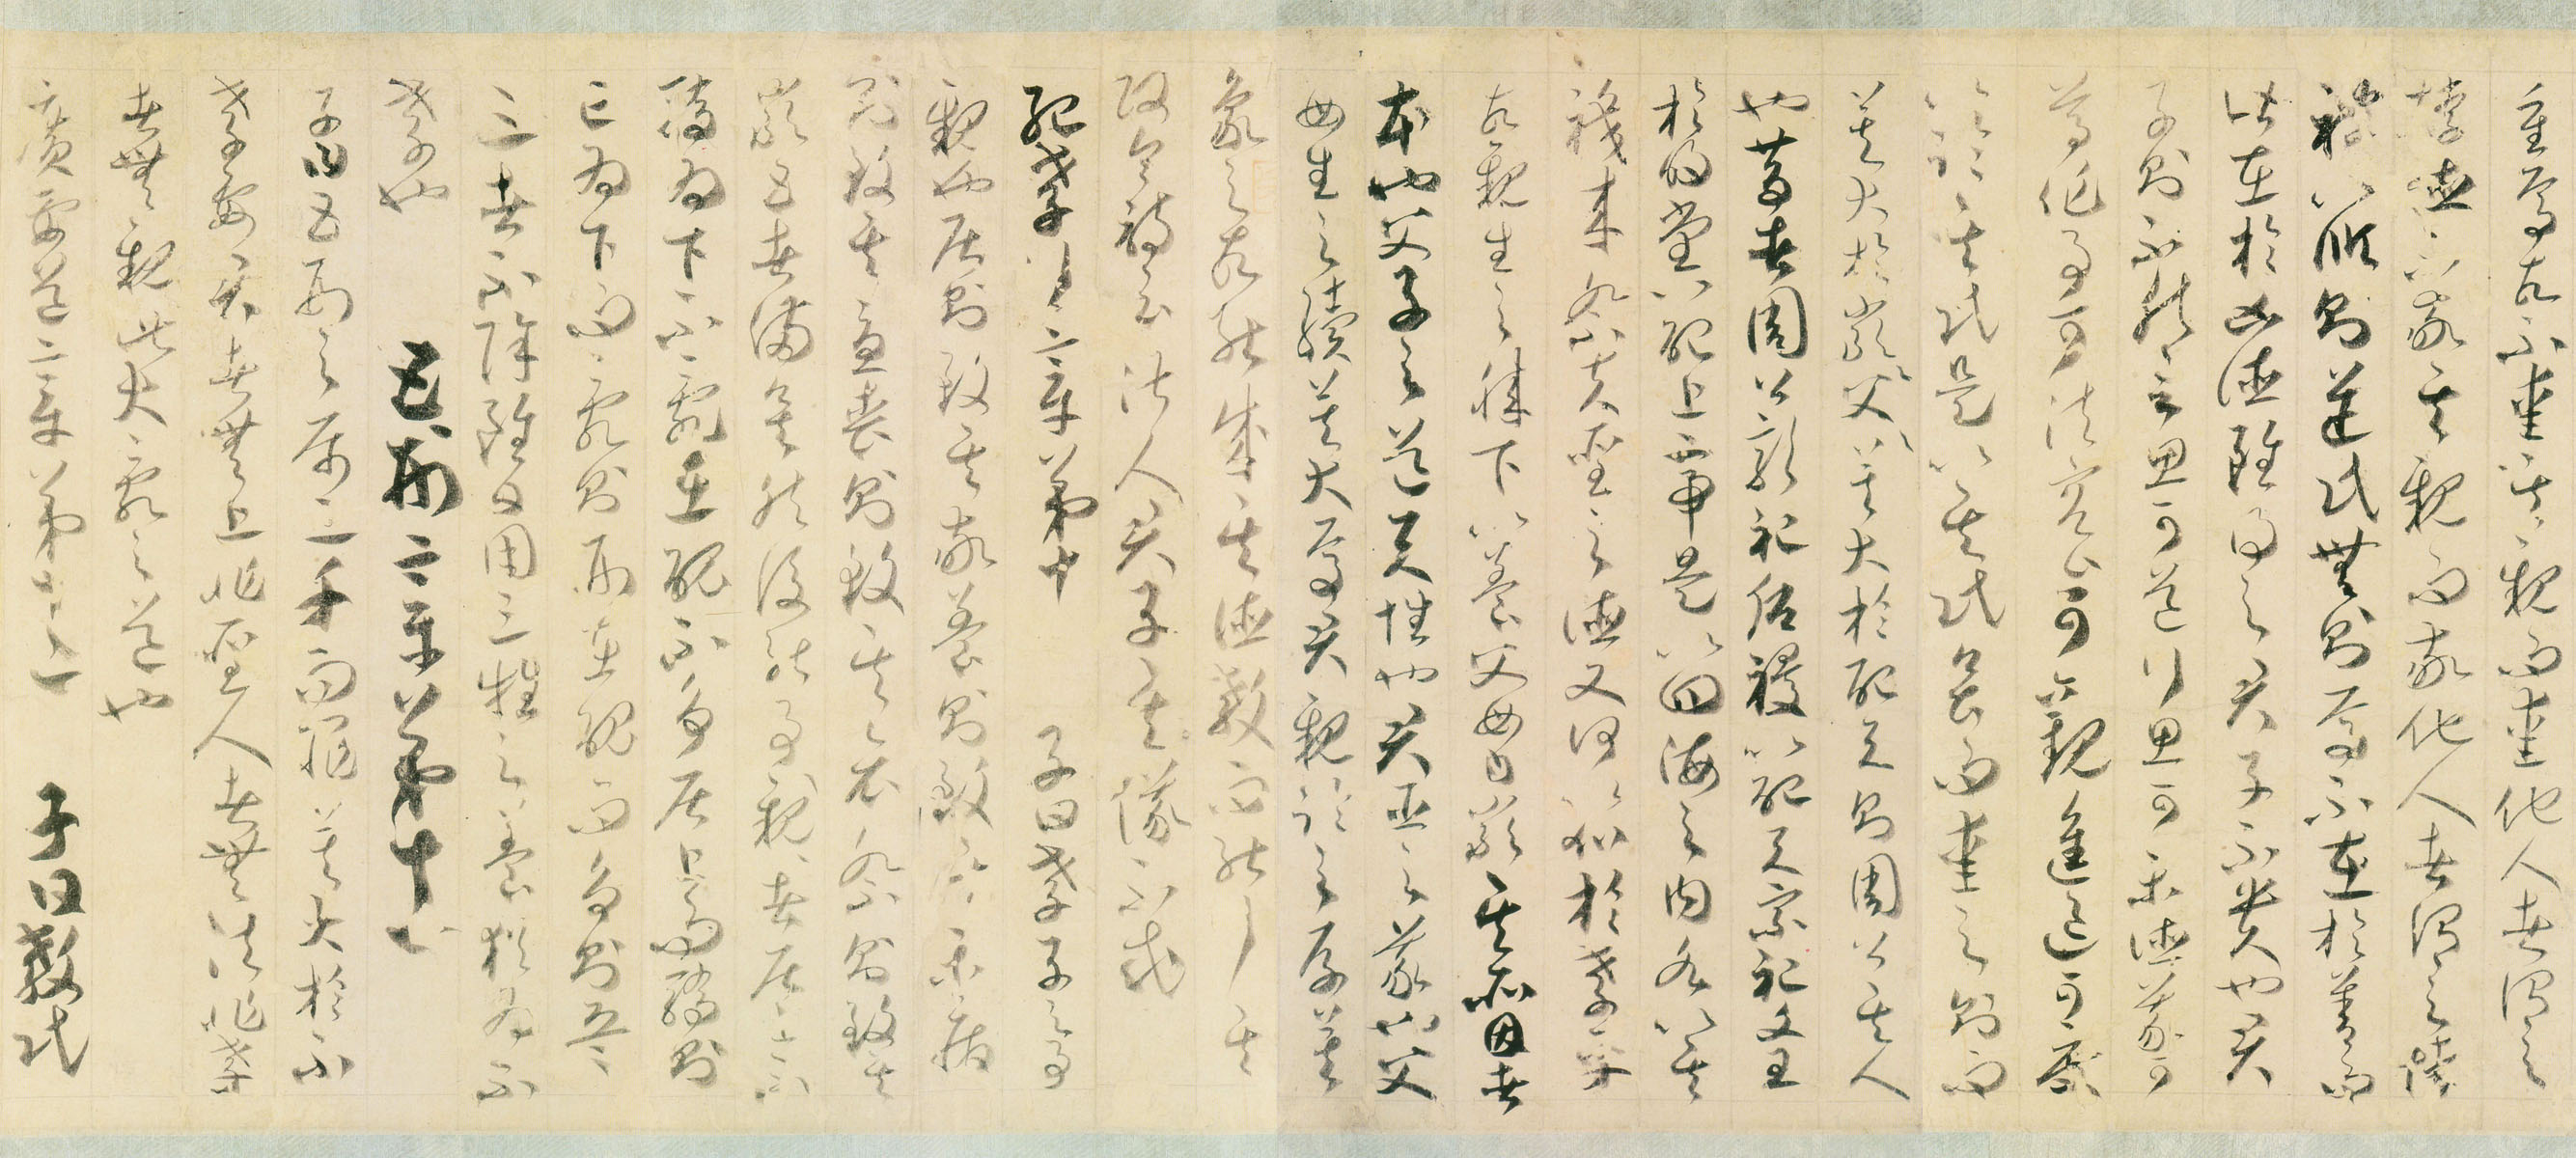 重焉故不愛其親而愛他人者謂之
悖德不敬其親而敬他人者謂之悖
禮以順則逆民無則焉不在於善而
皆在於凶德雖得之君子不貴也君
子則不然言思可道行思可樂德義可
尊作事可法容止可觀進退可度
以臨其民是以其民畏而愛之則而
莫大於嚴父嚴父莫大於配天則周公其人
也昔者周公郊祀后稷以配天宗祀文王
於明堂以配上帝是以四海之內各以其
職來祭夫聖之德又何以加於孝乎
故親生之膝下以養父母日嚴其所因者
本也父子之道天性也君臣之義也父
母生之續莫大焉君親臨之厚莫
象之故能成其德教而能行其
政令詩云淑人君子其儀不忒
紀孝行章第十 子曰孝子之事
親也居則致其敬養則致其樂病
則致其憂喪則致其哀祭則致其
嚴五者備矣然後能事親事親者居上不
驕為下不亂在醜不爭居上而驕則
亡為下而亂則刑在醜而爭則兵
三者不除雖日用三牲之養猶為不
孝也 五刑章第十一
子曰五刑之屬三千而罪莫大於不
孝要君者無上非聖人者無法非孝
者無親此大亂之道也
廣要道章第十二 子曰教民